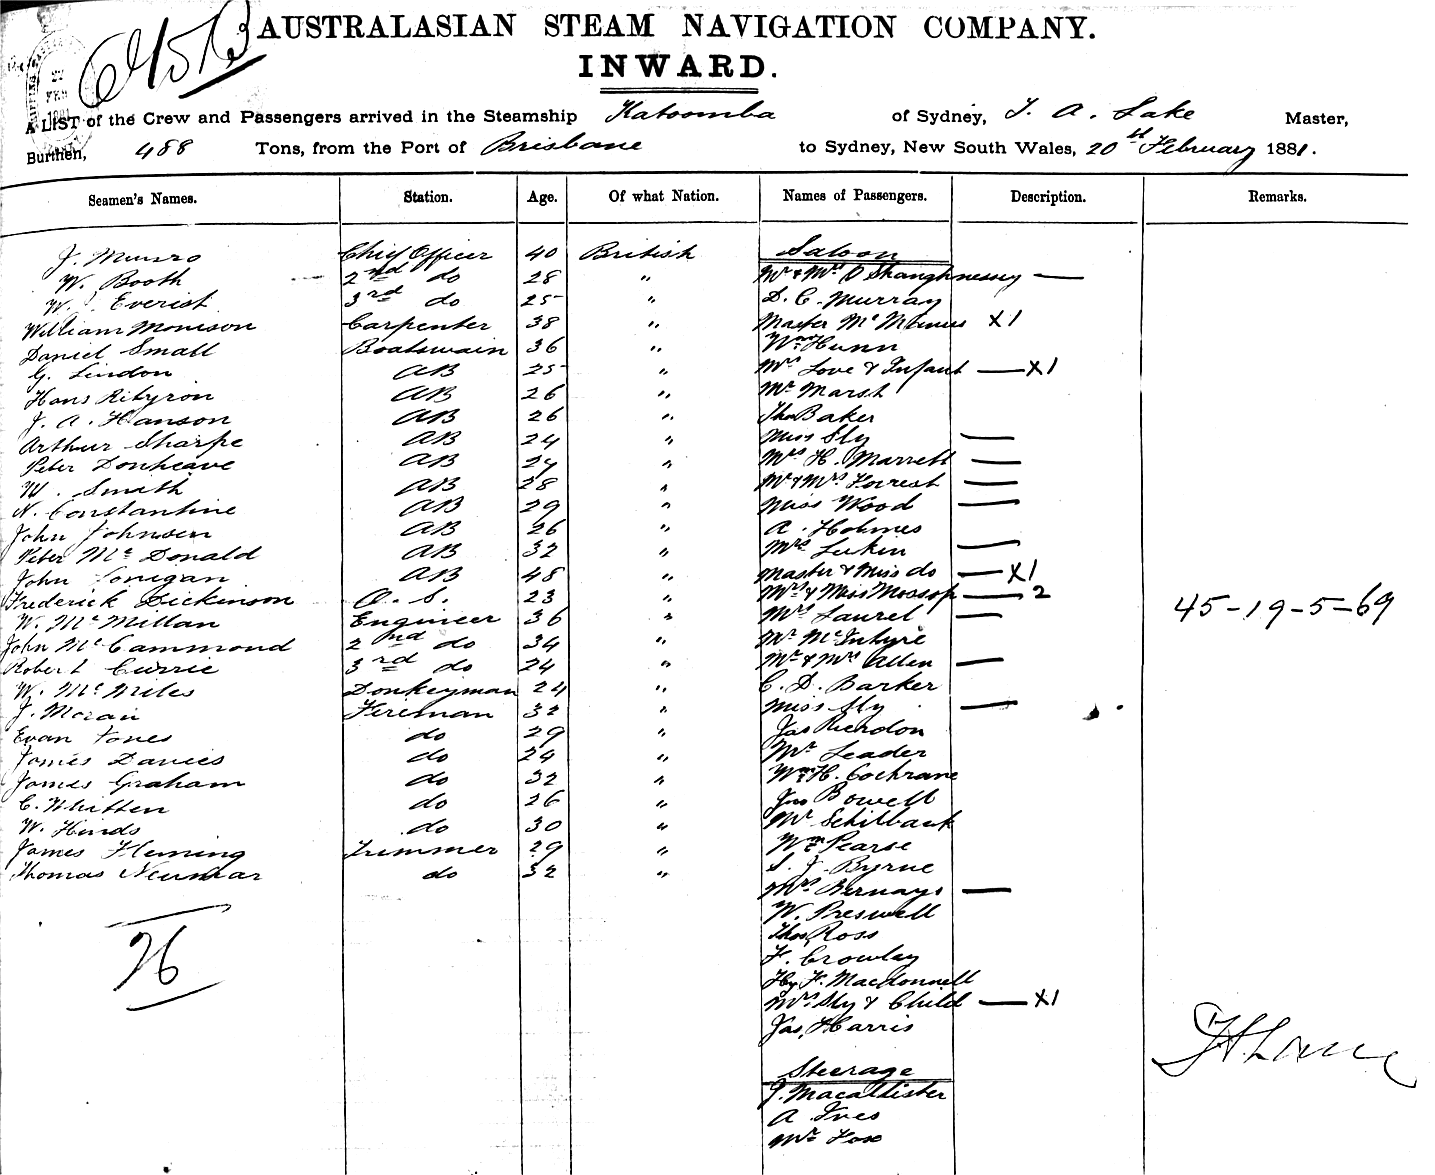 645B
AUSTRALASIAN STEAM NAVIGATION COMPANY.
INWARD.
A LIST of the Crew and Passengers arrived in the Steamship Katoomba of Sydney, T. A. Lake Master,
Burthen, 488 Tons, from the Port of Brisbane to Sydney, New South Wales, 20st February 1881.
Seamen's Names. Station. Age. Of what Nation. Names of Passengers. Description. Remarks.
J. Munro Chief Officer 40 British Saloon
W. Booth 2nd do 28 " Mr & Mrs O Shaughnessy —
W. J. Everist 3rd do 25 " D. C. Murray
William Morrison Carpenter 38 " Master McManus X1
Daniel Small Boatswain 36 " Wm Hunn
G. Lindon AB 25 " Mrs Love & Infant — X1
Hans AB 26 " Mr Marsh
J. A. Hanson AB 26 " Thos Baker
Arthur Sharpe AB 24 " Miss Sly —
Peter Donheave AB 27 " Mrs H. Marrett —
W. Smith AB 28 " Mr & Mrs Forrest —
N. Constantine AB 29 " Miss Wood —
John Johnsen AB 26 " A. Holmes
Peter McDonald AB 32 " Mrs Lukin —
John Lonigan AB 48 " Master & Miss do — X1
Frederick Dickinson O. S. 23 " Mrs & Miss Mossop — 2
W. McMillan Engineer 36 " Mrs Laurel —
John McCammond 2nd do 34 " Mr McIntyre
Robert Currie 3rd do 24 " Mr & Mrs Allen —
W. McMiles Donkeyman 24 " C. D. Barker
J. Moran Fireman 32 " Miss Sly —
Evan Jones do 29 " Jas Reardon
James Davies do 24 " Mr Leader
James Graham do 32 " Wm H. Cochrane
C. Whitten do 26 " Jno Bowell
W. Hinds do 30 " Mr Schilback
James Fleming Trimmer 29 " Wm Pearse
Thomas Neumar do 32 " S. J. Byrne
Mrs Bernays —
W. Preswell
Thos Ross
F. Crowley
Hy F. Macdonnell
Mrs Sly & Child — X1
Jas. Harris
Steerage
J. Macallister
A Ives
Mr Fox
45-19-5-69
26